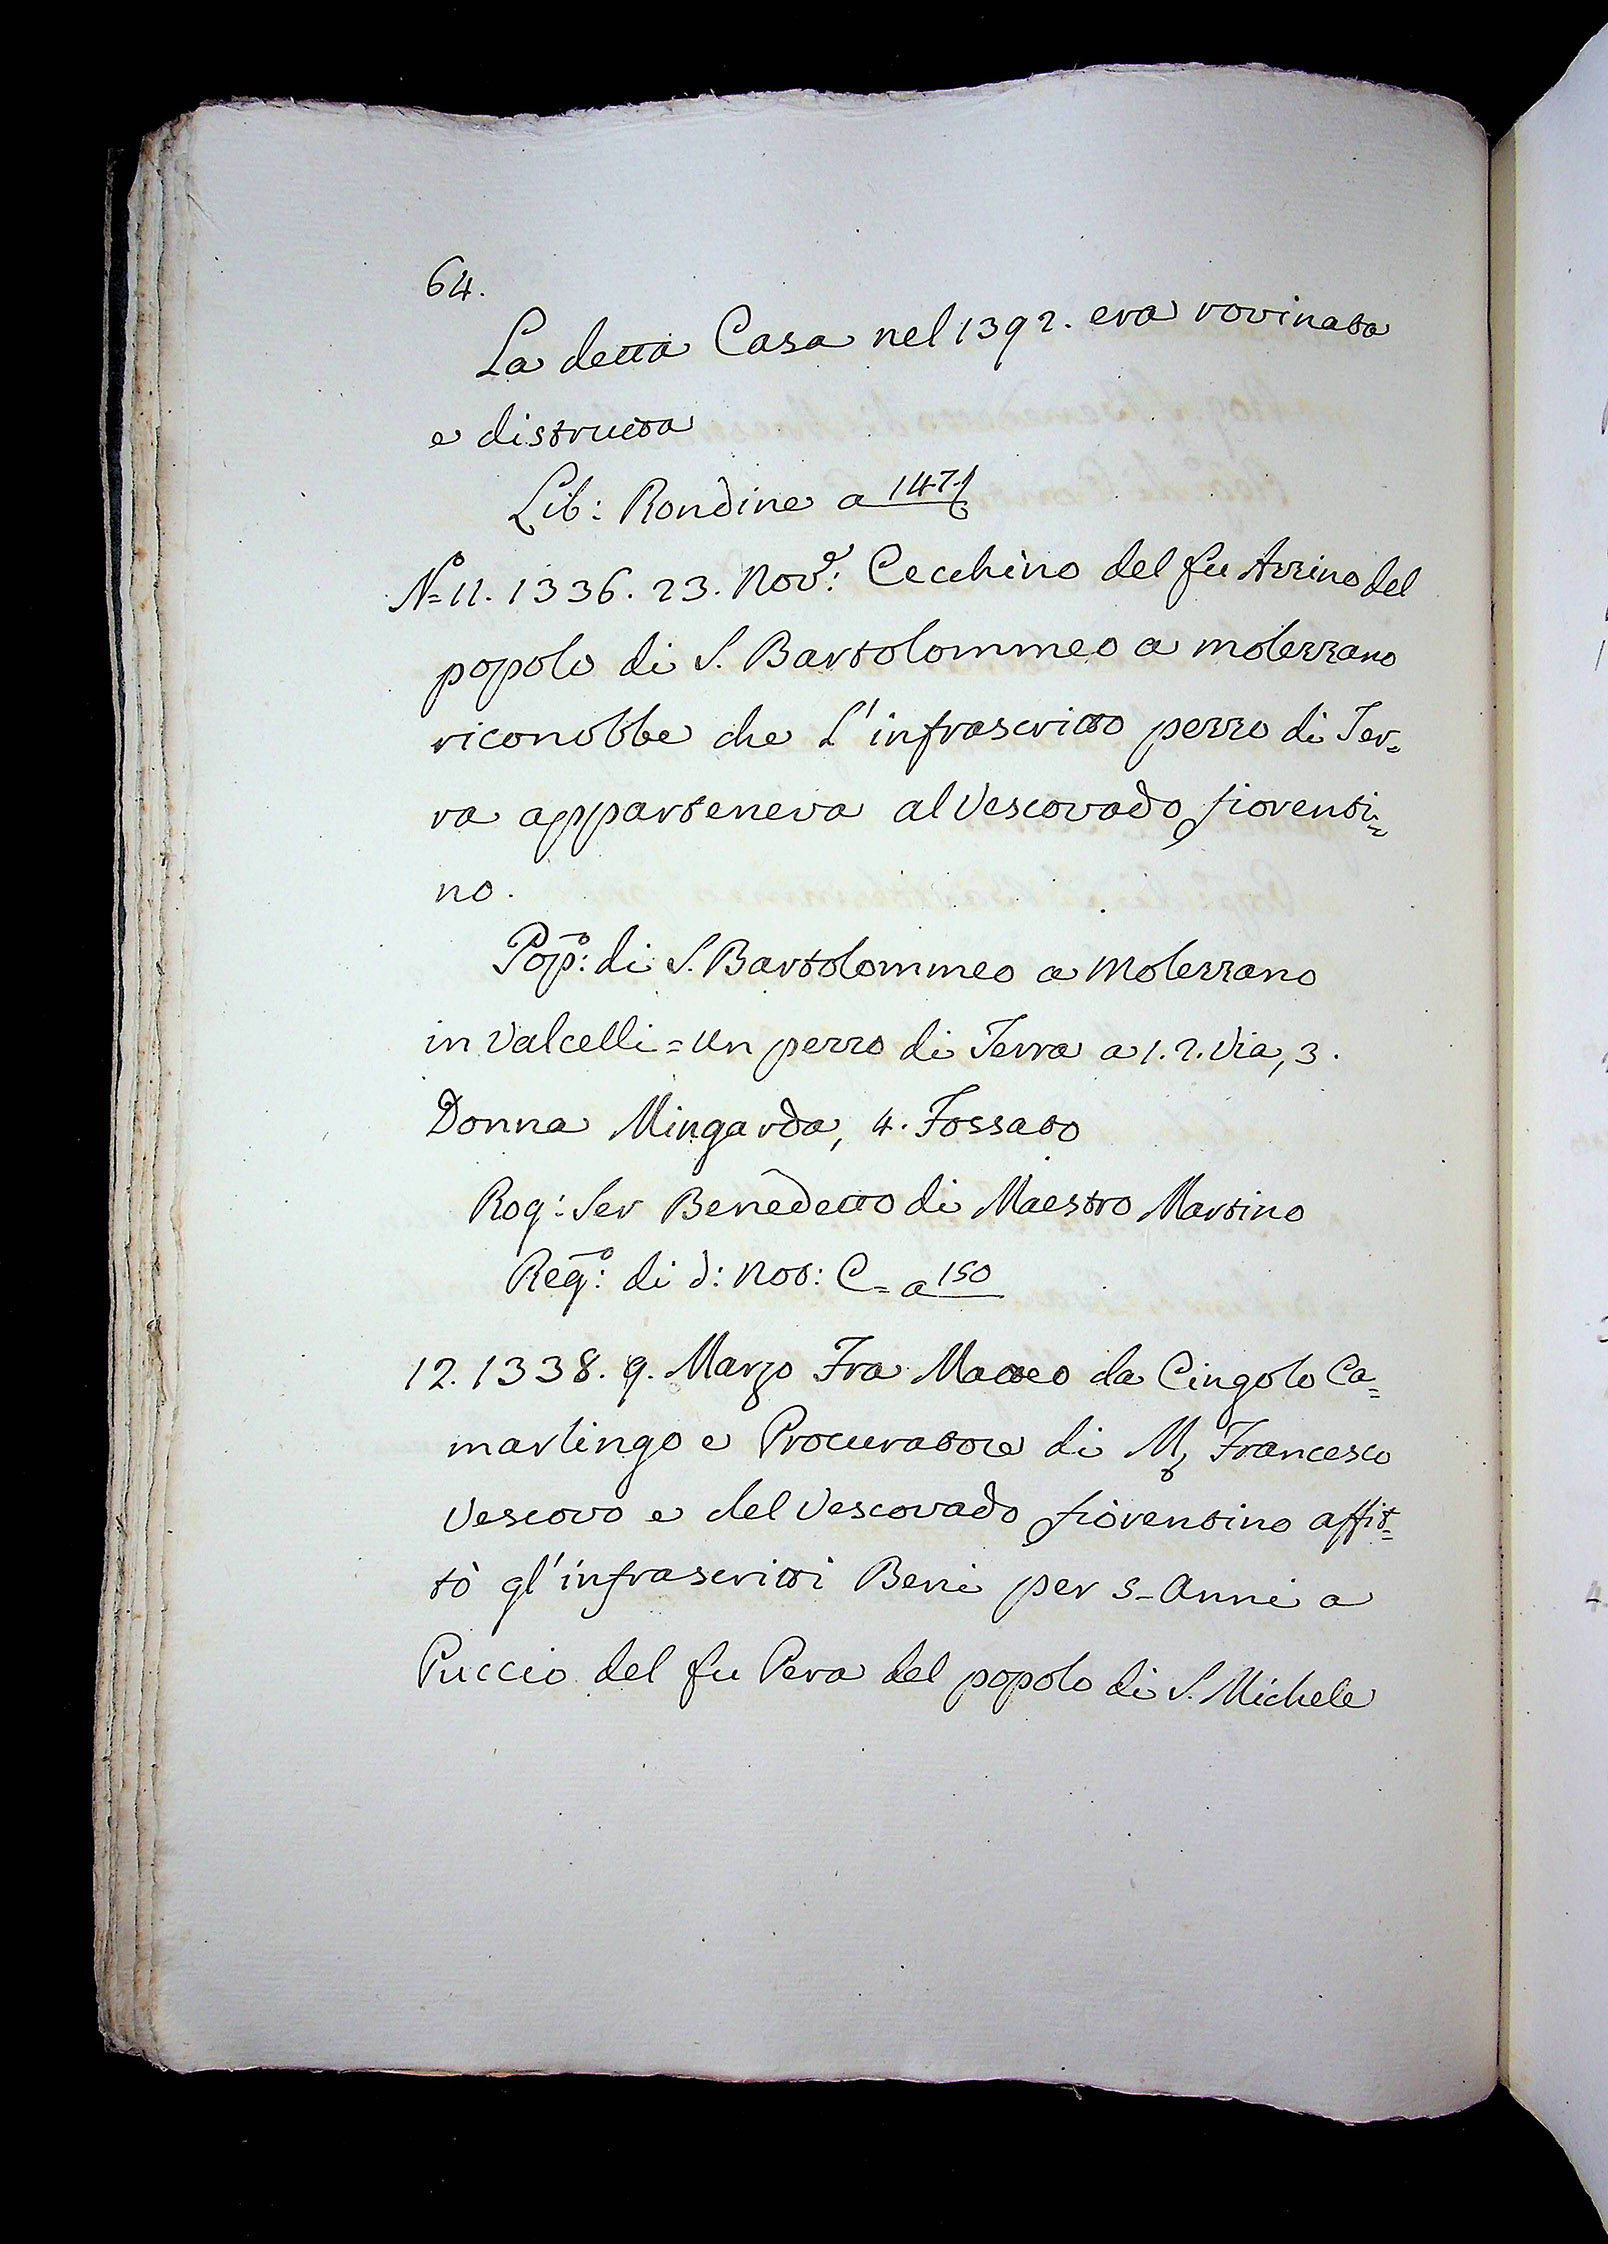 64.
La detta Casa nel 1392. era rovinata
e distrutta
Lib: Rondine a 147
Nº 11. 1336. 23. Nov.e: Cecchino del fu Azzino del
popolo di S. Bartolommeo a molezzano
riconobbe che l'infrascritto pezzo di Ter=
ra apparteneva al Vescovado fiorenti=
no.
Pop.o: di S. Bartolommeo a Molezzano
in Valcelli = Un pezzo di Terra a 1. 2. Via, 3.
Donna Mingarda, 4. Fossato
Rog: Ser Benedetto di Maestro Martino
Reg.o: di d: Not: C= a 150
12. 1338. 9. Marzo Fra Matteo da Cingolo Ca=
marlingo e Procuratore di M. Francesco
Vescovo e del Vescovado fiorentino affit=
tò gl'infrascritti Beni per 5- Anni a
Puccio del fu Pera del popolo di S. Michele